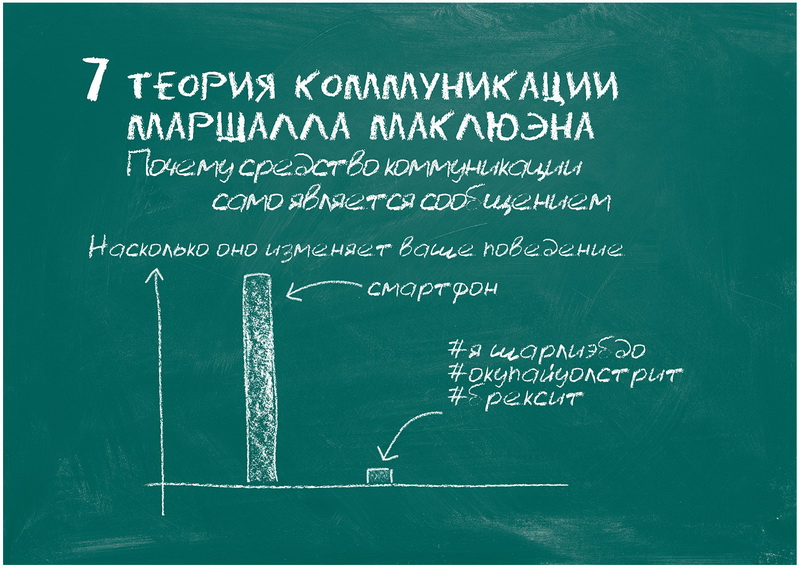 7 ТЕОРИЯ КОММУНИКАЦИИ
МАРШАЛЛА МАКЛЮЭНА
Почему средство коммуникации
само является сообщением
Насколько оно изменяет ваше поведение
смартфон
#я шарлиэбдо
#окупайуолстрит
#брексит